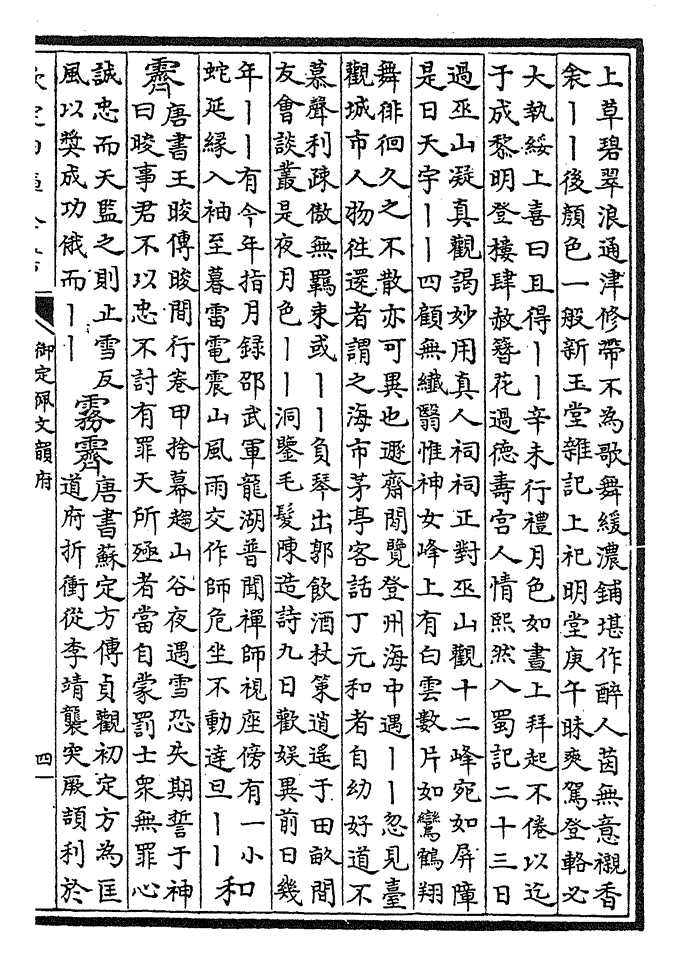 上草碧翠浪通津修帶不為歌舞緩濃鋪堪作醉人茵無意襯香
衾丨丨後顏色一般新玉堂雜記上祀明堂庚午昧爽駕登輅必
大執綏上喜曰且得丨丨辛未行禮月色如晝上拜起不倦以迄
于成黎明登樓肆赦簪花過德壽宮人情熙然入蜀記二十三日
過巫山凝真觀謁妙用真人祠祠正對巫山觀十二峰宛如屏障
是日天宇丨丨四顧無纖翳惟神女峰上有白雲數片如鸞鶴翔
舞徘徊久之不散亦可異也遯齋閒覽登州海中遇丨丨忽見臺
觀城市人物往還者謂之海市茅亭客話丁元和者自幼好道不
慕聲利疎傲無羈束或丨丨負琴出郭飲酒杖策逍遙于田畝間
友會談叢是夜月色丨丨洞鑒毛髮陳造詩九日歡娛異前日幾
年丨丨有今年指月錄邵武軍龍湖普聞禪師視座傍有一小
蛇延緣入袖至暮雷電震山風雨交作師危坐不動達旦丨丨
和
霽
唐書王晙傳晙間行卷甲捨幕趨山谷夜遇雪恐失期誓于神
曰晙事君不以忠不討有罪天所殛者當自蒙罰士衆無罪心
誠忠而天監之則止雪反
風以獎成功俄而丨丨
霧霽
唐書蘇定方傳貞觀初定方為匡
道府折衝從李靖襲突厥頡利於
御定佩文韻府
四一